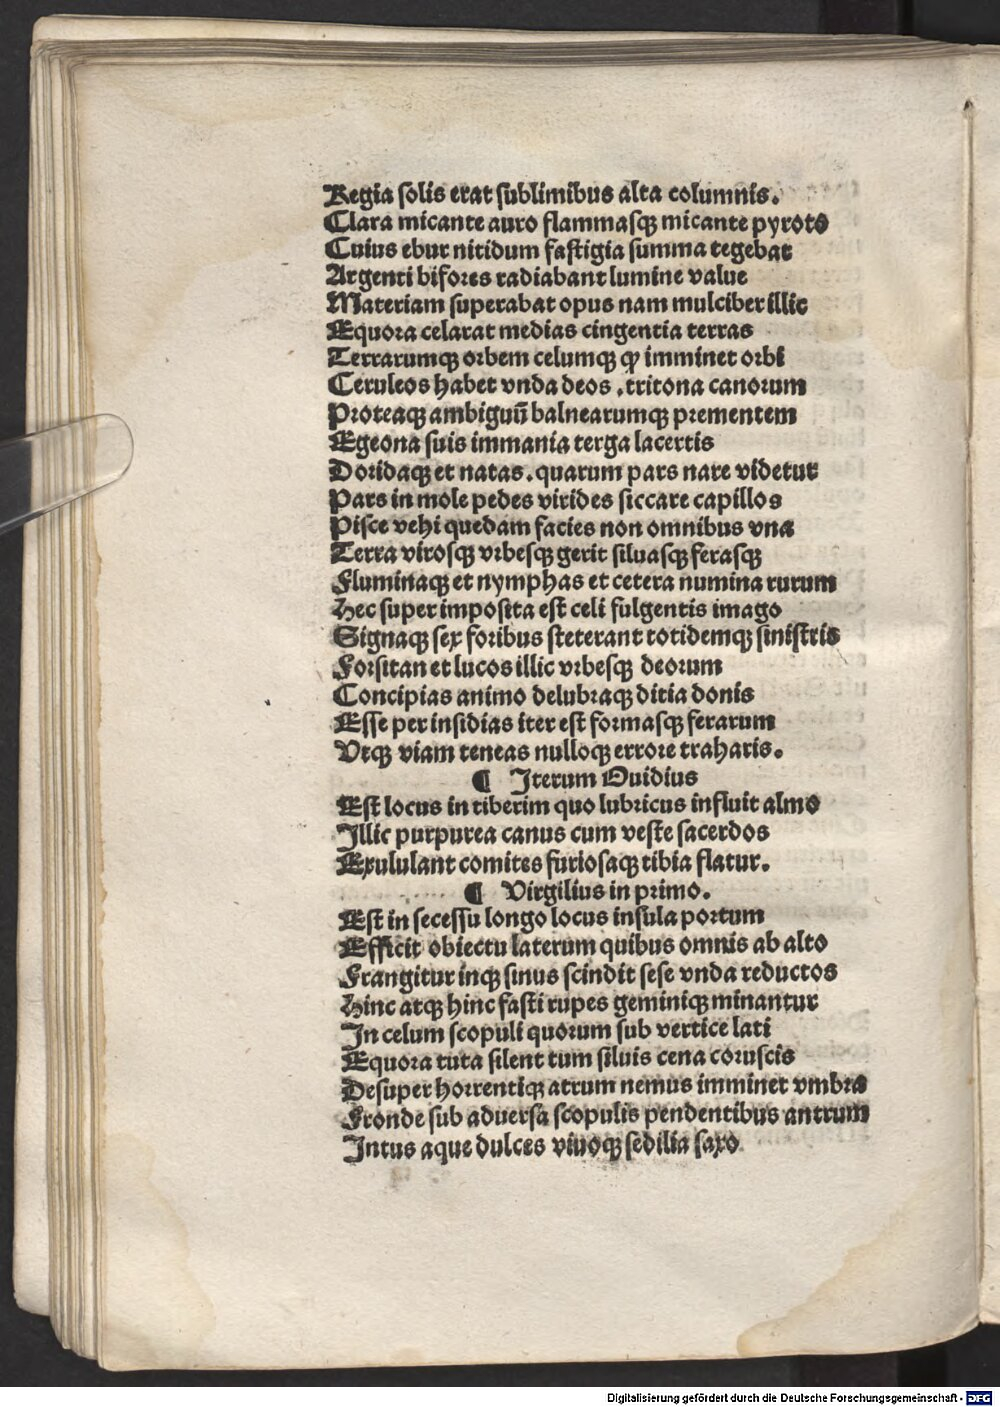 Regia ſolis erat ſublimibus alta columnis.
Clara micante auro flammaſqꝫ micante pyroto
Cuius ebur nitidum faſtigia ſumma tegebat
Argenti bifores radiabant lumine value
Materiam ſuperabat opus nam mulciber illic
Equora celarat medias cingentia terras
Terrarumqꝫ orbem celumqꝫ ꝙ imminet orbi
Ceruleos habet vnda deos .tritona canorum
Proteaqꝫ ambiguū balnearumqꝫ prementem
Egeona ſuis immania terga lacertis
Doridaqꝫ et natas. quarum pars nare videtur
Pars in mole pedes virides ſiccare capillos
Piſce vehi quedam facies non omnibus vna
Terra viroſqꝫ vrbeſqꝫ gerit ſiluaſqꝫ feraſqꝫ
Fluminaqꝫ et nymphas et cetera numina rurum
Hec ſuper impoſita eſt celi fulgentis imago
Signaqꝫ ſex foribus ſteterant totidemqꝫ ſiniſtris
Forſitan et lucos illic vrbeſqꝫ deorum
Concipias animo delubraqꝫ ditia donis
Eſſe per inſidias iter eſt formaſqꝫ ferarum
Vtqꝫ viam teneas nulloqꝫ errore traharis.
¶ Iterum Ouidius
Eſt locus in tiberim quo lubricus influit almo
Illic purpurea canus cum veſte ſacerdos
Exululant comites furioſaqꝫ tibia flatur.
¶ Virgilius in primo.
Eſt in ſeceſſu longo locus inſula portum
Efficit obiectu laterum quibus omnis ab alto
Frangitur inqꝫ ſinus ſcindit ſeſe vnda reductos
Hinc atqꝫ hinc faſti rupes geminiqꝫ minantur
In celum ſcopuli quorum ſub vertice lati
Equora tuta ſilent tum ſiluis cena coruſcis
Deſuper horrentiqꝫ atrum nemus imminet vmbra
Fronde ſub aduerſa ſcopulis pendentibus antrum
Intus aque dulces viuoqꝫ ſedilia ſaxo
Digitalisierung gefördert durch die Deutsche Forschungsgemeinschaft - DFG